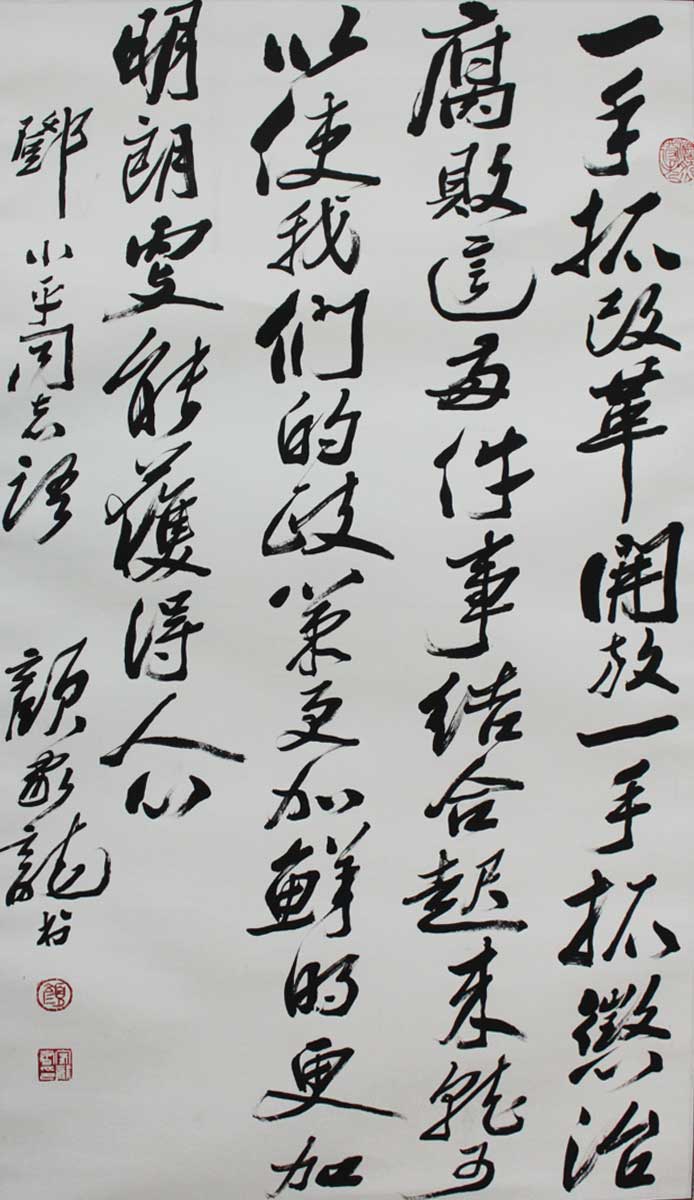 一手抓改革開放一手抓懲治
腐敗這兩件事結合起来就可
以使我們的政策更加鮮明更加
明朗更能獲得人心
鄧小平同志語
顏家龍书